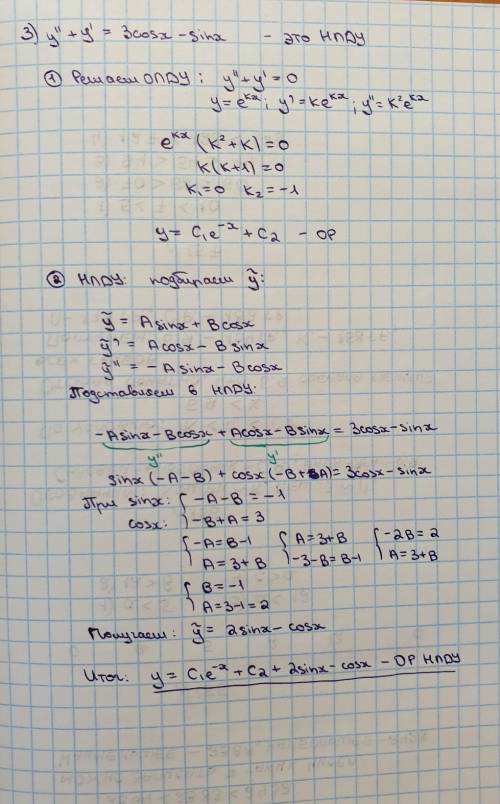 3) y'' + y' = 3cosx - sinx - это НЛДУ
① Решаем ОЛДУ: y'' + y' = 0
y = e^{kx}; y' = ke^{kx}; y'' = k²e^{kx}
e^{kx}(k² + k) = 0
k(k+1) = 0
k₁ = 0 k₂ = -1
y = C₁e^{-x} + C₂ - ОР
② НЛДУ: подбираем ỹ:
ỹ = Asinx + Bcosx
ỹ' = Acosx - Bsinx
ỹ'' = -Asinx - Bcosx
Подставляем в НЛДУ:
-Asinx - Bcosx + Acosx - Bsinx = 3cosx - sinx
y'' y'
sinx(-A-B) + cosx(-B+A) = 3cosx - sinx
При sinx: { -A-B = -1
cosx: { -B+A = 3
{ -A = B-1 { A = 3+B { -2B = 2
{ A = 3+B { -3-B = B-1 { A = 3+B
{ B = -1
{ A = 3-1 = 2
Получаем: ỹ = 2sinx - cosx
Итог: y = C₁e^{-x} + C₂ + 2sinx - cosx - ОР НЛДУ